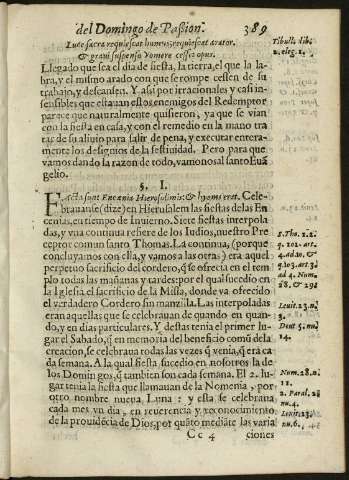 del Domingo de Passion. 389
Luce sacra requiescat humus, requiescat arator.
& gravi suspenso vomere cesset opus.
Tibull. lib.
2. eleg. 1.
Llegado que sea el dia de fiesta, la tierra, el que la la-
bra, y el mismo arado con que se rompe cessen de su
trabajo, y descansen. Y assi por irracionales y casi in-
sensibles que estauan estos enemigos del Redemptor
parece que naturalmente quisieron, ya que se vian
con la fiesta en casa, y con el remedio en la mano tra-
tar de su aliuio para salir de pena, y executar entera-
mente los designios de la festiuidad. Pero para que
vamos dando la razon de todo, vamonos al santo Euã
gelio.
§. I.
Facta sunt Encænia Hierosolimis: & hyems erat. Cele-
brauanse (dize) en Hierusalem las fiestas de las En
cenias, en tiempo de Inuierno. Siete fiestas interpola
das, y vna continua refiere de los Iudios, nuestro Pre
ceptor comun santo Thomas. La continua, (porque
concluyamos con ella, y vamos a las otras) era aquel
perpetuo sacrificio del cordero, q̃ se ofrecia en el tem
plo todas las mañanas y tardes: por el qual sucedio en
la Iglesia el sacrificio de la Missa, donde va ofrecido
el verdadero Cordero sin manzilla. Las interpoladas
eran aquellas que se celebrauan de quando en quan-
do, y en dias particulares. Y destas tenia el primer lu-
gar el Sabado, q̃ en memoria del beneficio comũ de la
creacion, se celebraua todas las vezes q̃ venia, q̃ era ca
da semana. A la qual fiesta sucedio en nosotros la de
los Domingos, q̃ tambien son cada semana. El 2. lu-
gar tenia la fiesta que llamauan de la Nomenia, por
otro nombre nueua Luna: y esta se celebraua
cada mes vn dia, en reuerencia y reconocimiento
de la prouidẽcia de Dios, por quãto mediãte las varia
S. Tho. 1. 2.
q. 102. art.
4. ad 10. &
q. 103. art. 3.
ad 4. Num.
28. & 29.
Leuit. 23. n.
3.
Deut 5. nu.
14.
Num. 28. n.
11.
2. Paral. 28
nu. 4.
Leuit. 23.
nu. 6.
Cc 4 ciones